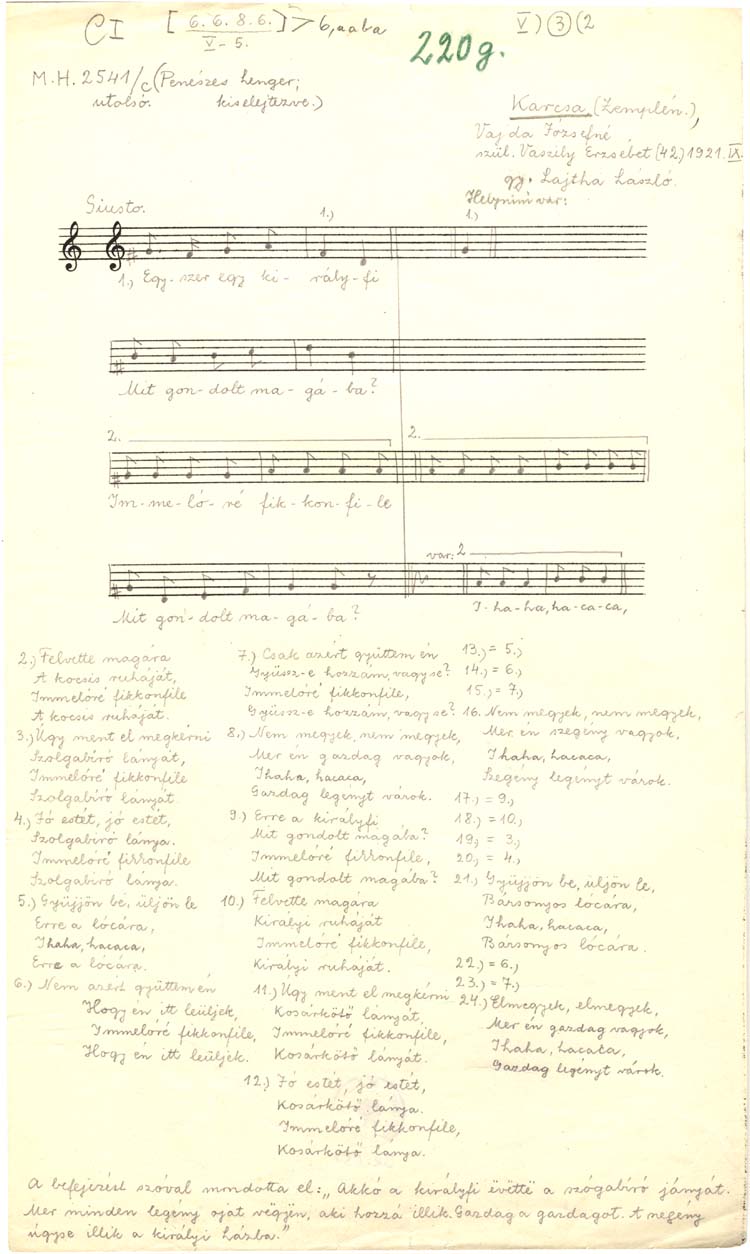 CI [6. 6. 8. 6.] > 6, aaba V) ③ (2
V - 5.
220g.
M.H. 2541/c (Penészes henger;
utolsó. kiselejtezve.)
Karcsa, (Zemplén.),
Vajda Józsefné
szül. Vaszily Erzsébet (42) 1921. IX.
gy. Lajtha László.
Giusto. 1.) Helynini var: 1.)
1.) Egy-szer egy ki- rály-fi
Mit gon-dolt ma-gá-ba?
2. 2.
Im-me-ló-ré fik-kon-fi-le
var: 2
Mit gon-dolt ma-gá-ba? I-ha-ha, ha-ca-ca,
2.) Felvette magára
A kocsis ruháját,
Immelóré fikkonfile
A kocsis ruháját.
3.) Úgy ment el megkérni
Szolgabíró lányát,
Immelóré fikkonfile
Szolgabíró lányát.
4.) Jó estét, jó estét,
Szolgabíró lánya.
Immelóré fikkonfile
Szolgabíró lánya.
5.) Gyüjjön be, üljön le
Erre a lócára,
Ihaha, hacaca,
Erre a lócára.
6.) Nem azért gyüttem én
Hogy én itt leüljek,
Immelóré fikkonfile,
Hogy én itt leüljek.
7.) Csak azért gyüttem én
Gyüssz-e hozzám, vagy se?
Immelóré fikkonfile,
Gyüssz-e hozzám, vagy se?
8.) Nem megyek, nem megyek,
Mer én gazdag vagyok,
Ihaha, hacaca,
Gazdag legényt várok.
9.) Erre a királyfi
Mit gondolt magába?
Immelóré fikkonfile,
Mit gondolt magába?
10.) Felvette magára
Királyi ruháját
Immelóré fikkonfile,
Királyi ruháját.
11.) Úgy ment el megkérni
Kosárkötő lányát,
Immelóré fikkonfile,
Kosárkötő lányát.
12.) Jó estét, jó estét,
Kosárkötő lánya.
Immelóré fikkonfile,
Kosárkötő lánya.
13.) = 5.)
14.) = 6.)
15.) = 7.)
16. Nem megyek, nem megyek,
Mer én szegény vagyok,
Ihaha, hacaca,
Szegény legényt várok.
17.) = 9.)
18.) = 10.)
19.) = 3.)
20.) = 4.)
21.) Gyüjjön be, üljön le,
Bársonyos lócára,
Ihaha, hacaca,
Bársonyos lócára.
22.) = 6.)
23.) = 7.)
24.) Elmegyek, elmegyek,
Mer én gazdag vagyok,
Ihaha, hacaca,
Gazdag legényt várok.
A befejezést szóval mondotta el: „Akkó a királyfi ēvëttë a szógabíró jányát.
Mer minden legény oját vëgyën, aki hozzá illik. Gazdag a gazdagot. A
úgyse illik a királyi házba."